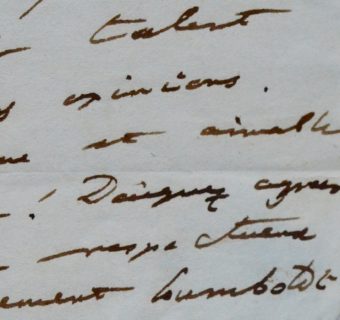 talent
opinions.
et aimable
! Daignez agréer
respectueux
ement Humboldt